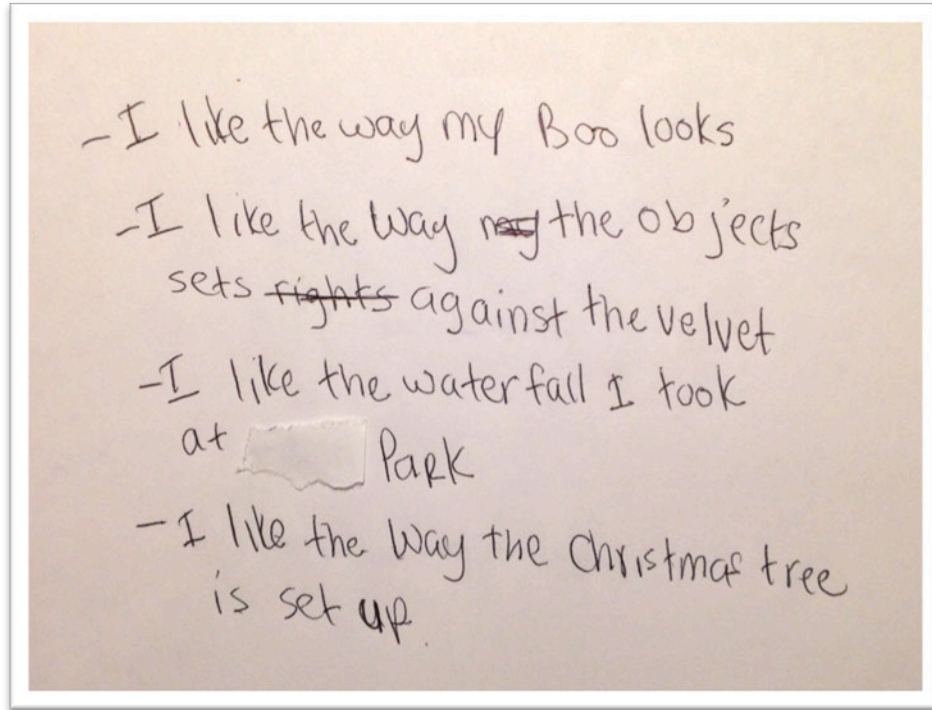 - I like the way my Boo looks
- I like the way the objects
sets rights against the velvet
- I like the waterfall I took
at Park
- I like the way the Christmas tree
is set up.